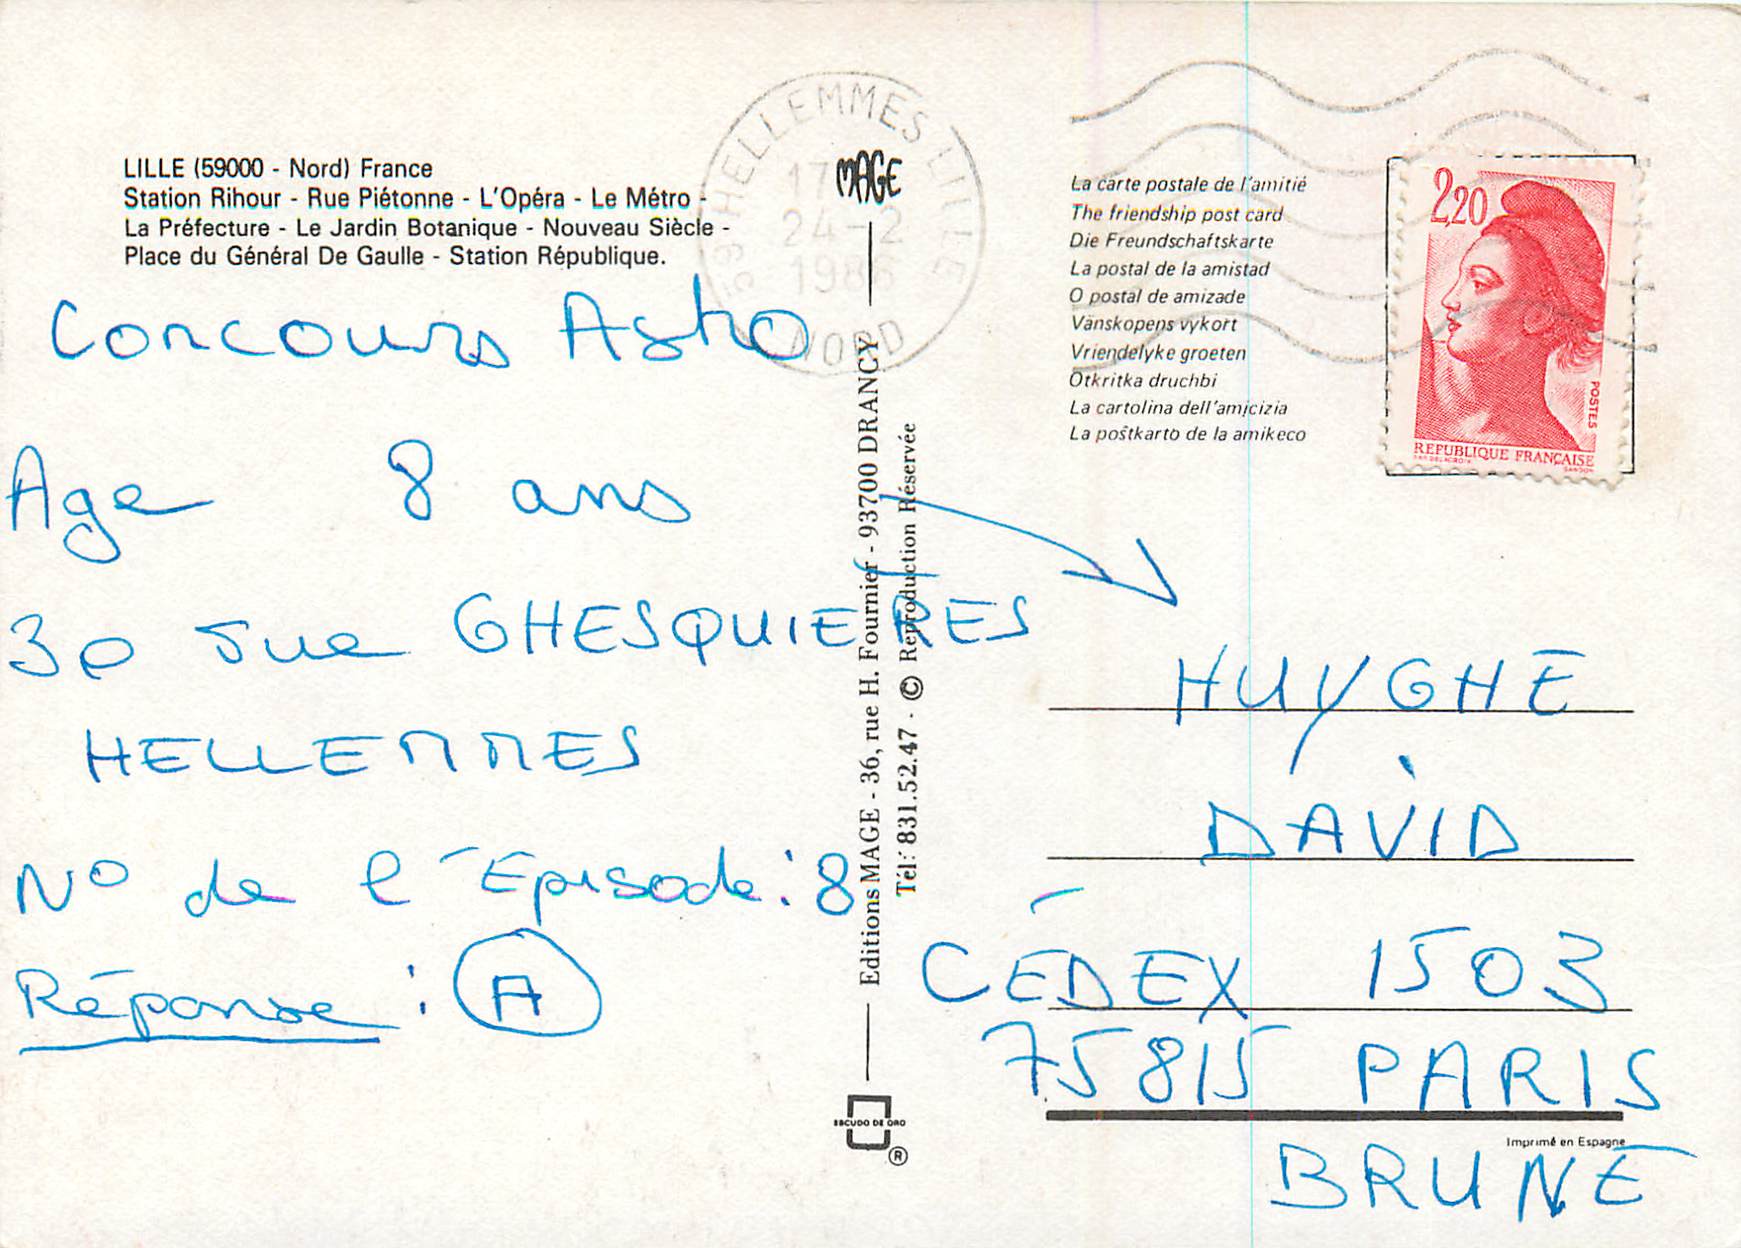 LILLE (59000 - Nord) France
Station Rihour - Rue Piétonne - L'Opéra - Le Métro -
La Préfecture - Le Jardin Botanique - Nouveau Siècle -
Place du Général De Gaulle - Station République.
Concours Astro
Age 8 ans
30 rue GHESQUIERES
HELLEMMES
N° de l'Episode : 8
Réponse : A
59 HELLEMMES LILLE
17
24-2
1986
NORD
MAGE
Editions MAGE - 36, rue H. Fournier - 93700 DRANCY
Tél: 831.52.47 - © Reproduction Réservée
ESCUDO DE ORO
®
La carte postale de l'amitié
The friendship post card
Die Freundschaftskarte
La postal de la amistad
O postal de amizade
Vänskopens vykort
Vriendelyke groeten
Otkritka druchbi
La cartolina dell'amicizia
La poŝtkarto de la amikeco
2,20
POSTES
REPUBLIQUE FRANÇAISE
GANDON
HUYGHE
DAVID
CÉDEX 1503
75815 PARIS
Imprimé en Espagne
BRUNE